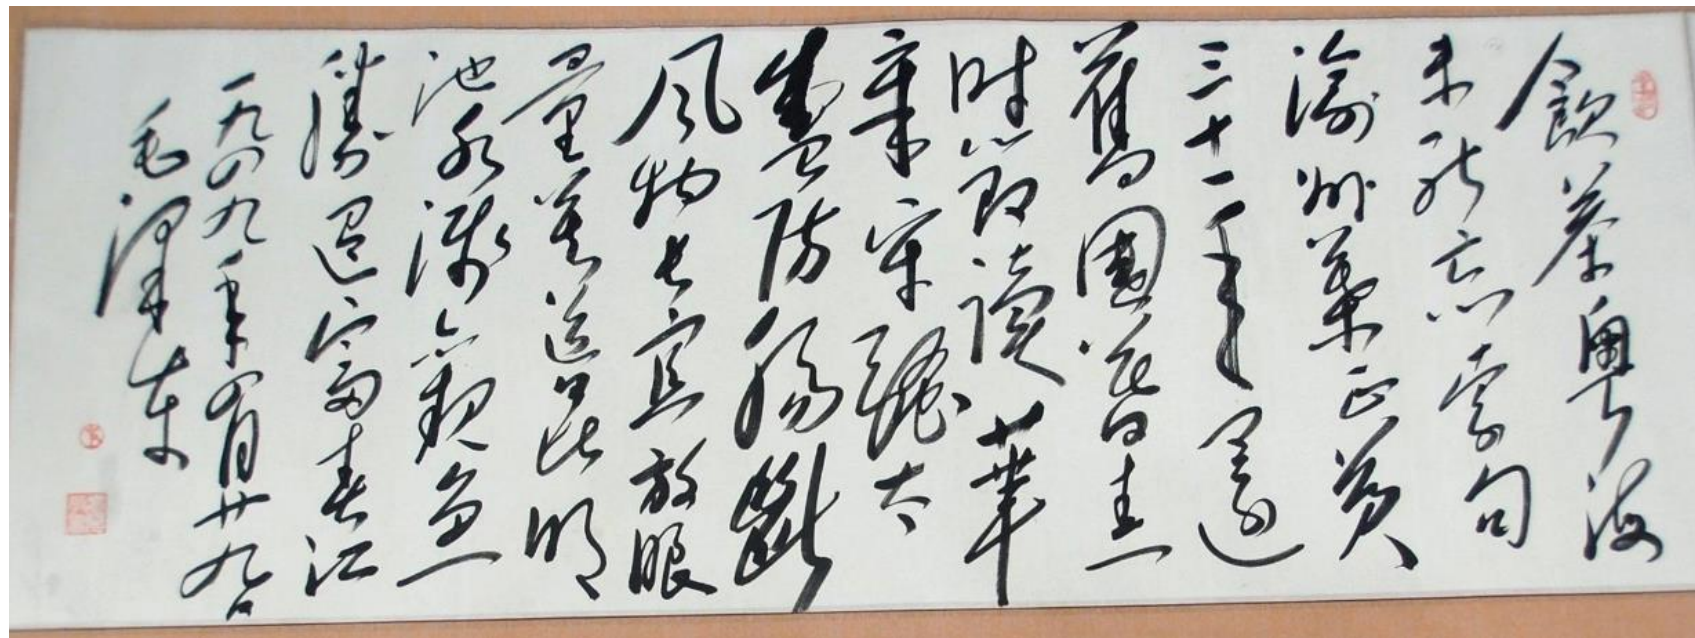 飲茶粤海
未能忘索句
渝州葉正黄
三十一年還
舊國落花
時節讀華
章牢騷太
盛防腸斷
風物長宜放眼
量莫道昆明
池水淺觀魚
勝過富春江
一九四九年四月廿九日
毛澤東